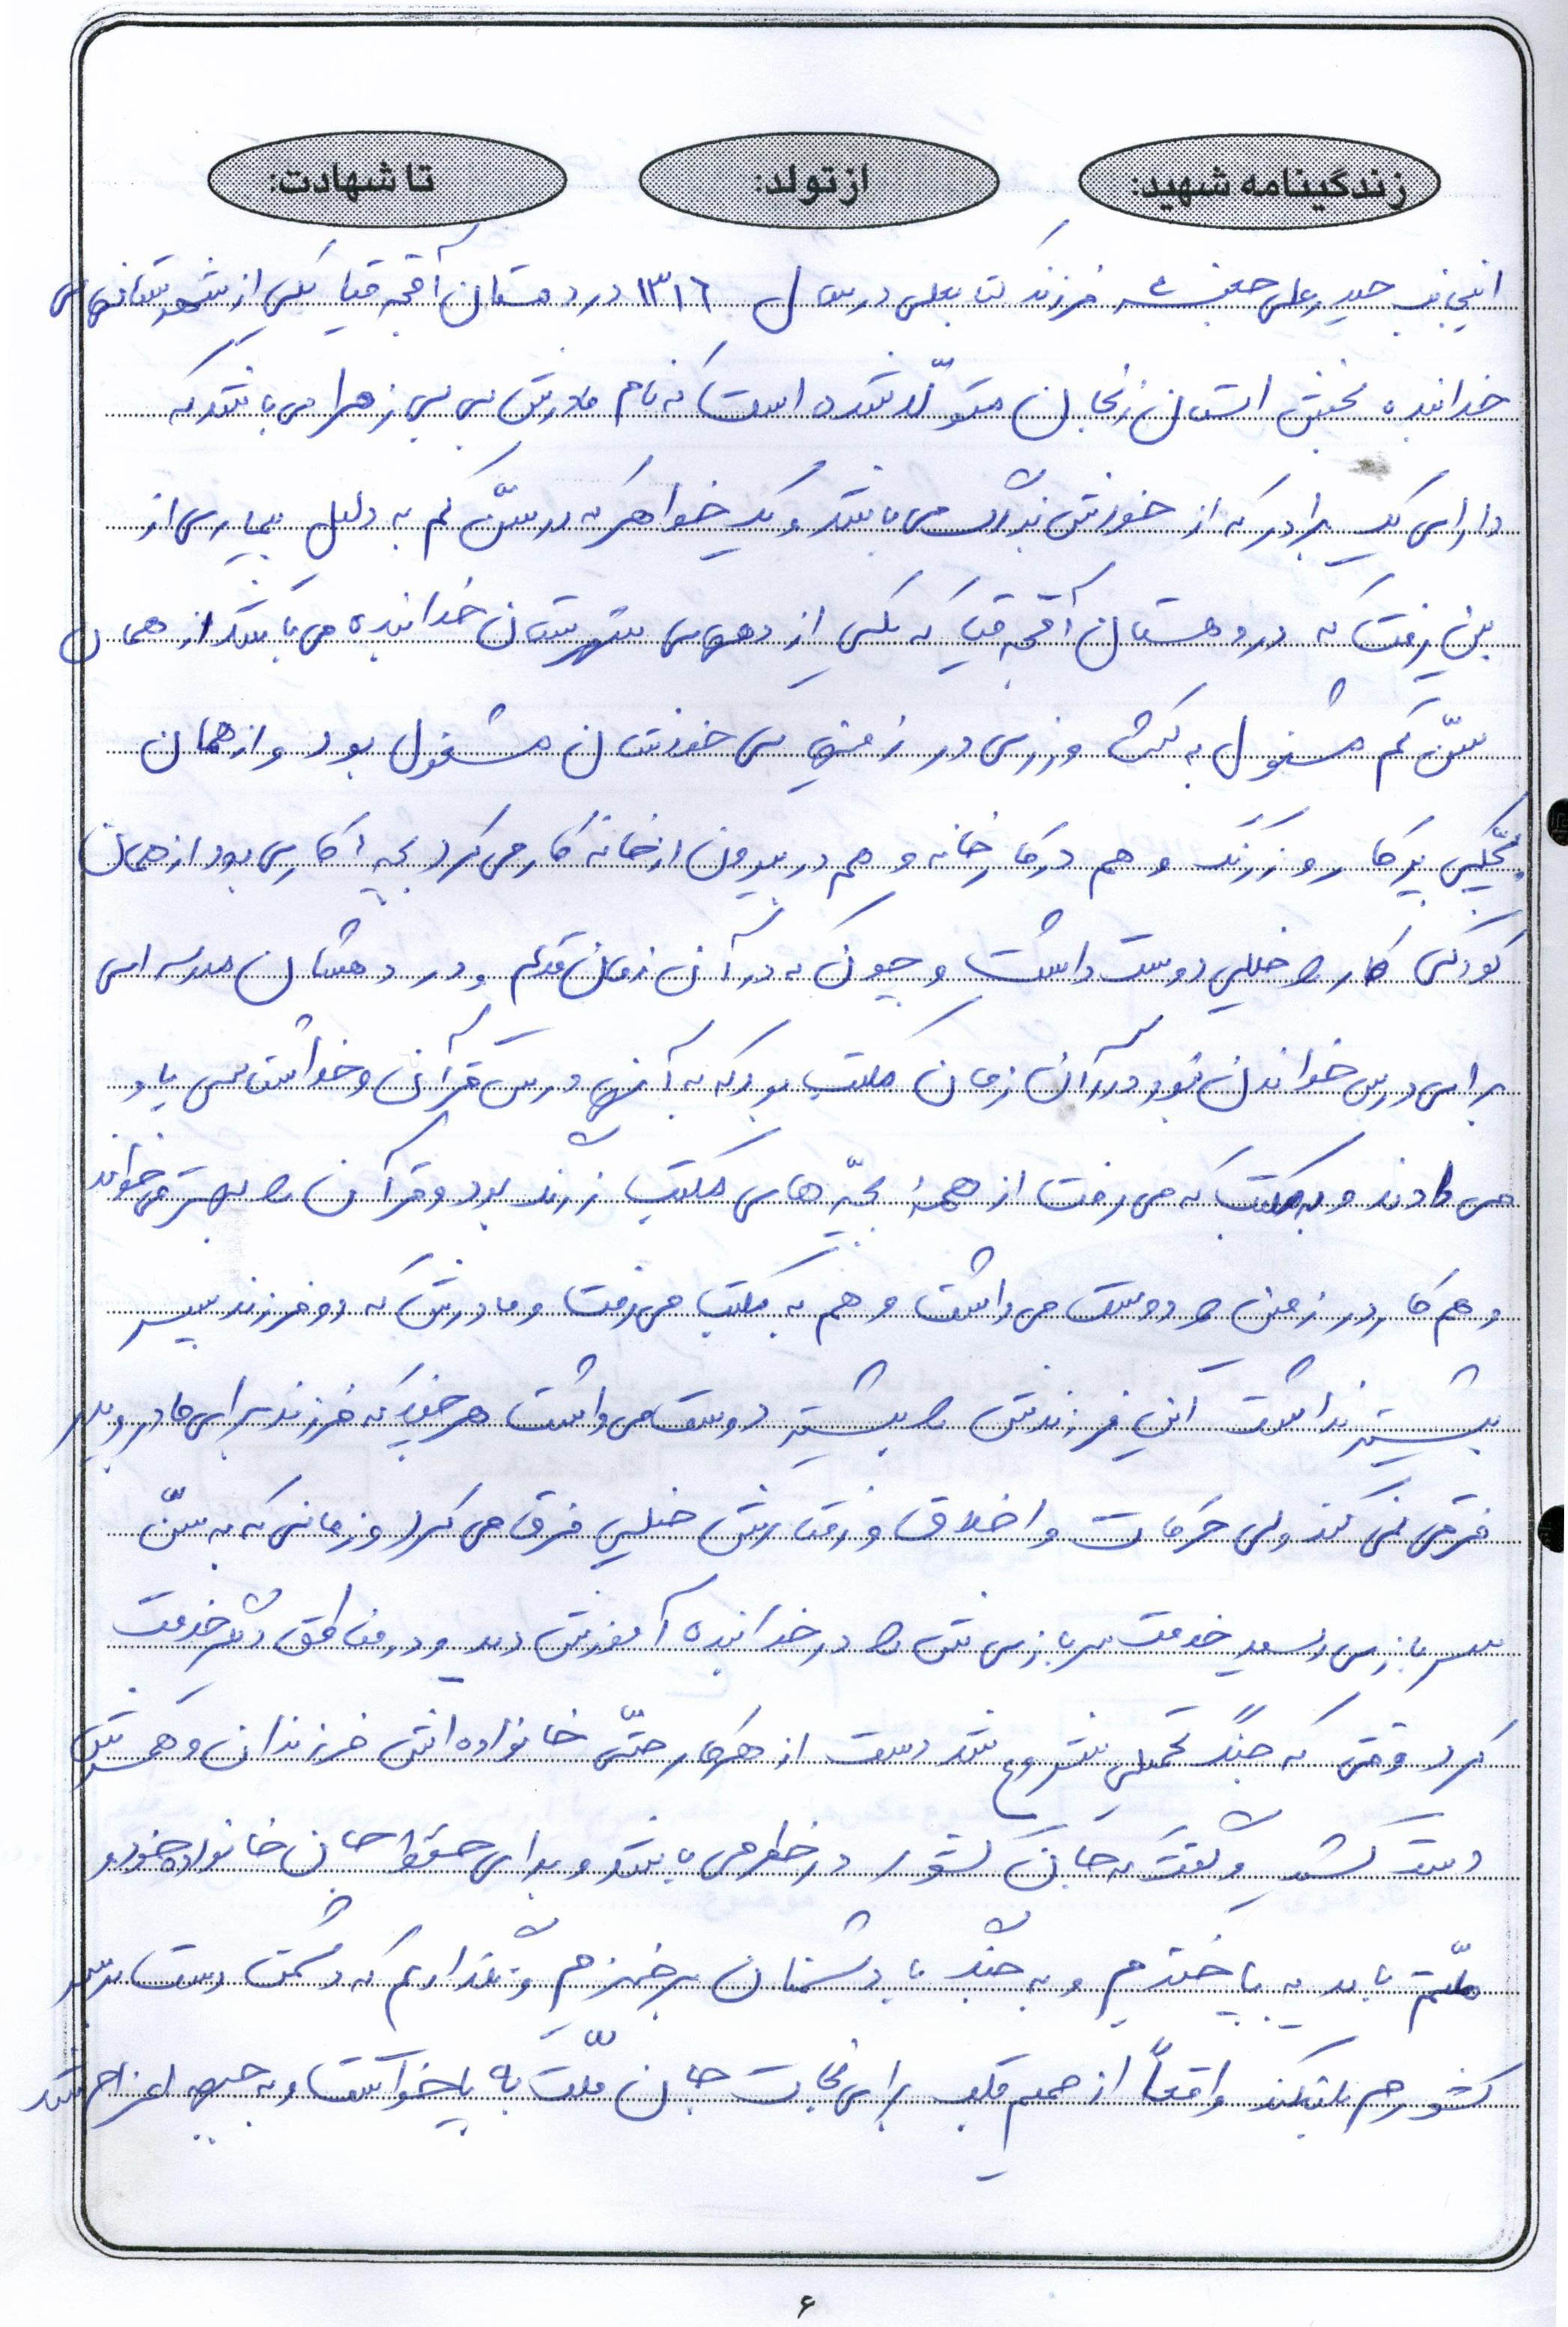 زندگینامه شهید: از تولد: تا شهادت:
اینجانب حیدرعلی فرزند در سال ۱۳۱۶ در دهستان آقجه قیا یکی از شهرستانهای
خدابنده بخش استان زنجان متولّد شده است که نام مادرش بی بی زهرا می باشد که
دارای یک برادر که از خودش بزرگ می باشد و یک خواهر که در سنّ کم به دلیل بیماری از
بین رفت که در دهستان آقجه قیا که یکی از دههای شهرستان خدابنده می باشد از همان
سنّ کم مشغول به کشاورزی در زمینهای خودشان مشغول بود و از همان
بچّگی پرکار و زرنگ و هم در کارخانه و هم در بیرون از خانه کار می کرد بچه ای کاری بود از همان
کودکی کار را خیلی دوست داشت و چون که در آن زمان قدیم و در دهستان مدرسه ای
برای درس خواندن نبود در آن زمان مکتب بود که به آنها درس قرآن و خداشناسی یاد
می دادند و به مکتب که می رفت از همهٔ بچّه های مکتب زرنگ بود و قرآن را بهتر می خواند
و هم کار در زمین را دوست می داشت و هم به مکتب می رفت و مادرش که دو فرزند پسر
بیشتر نداشت این فرزندش را بیشتر دوست می داشت هر چند که فرزند برای مادر و پدر
فرقی نمی کند ولی حرکات و اخلاق و رفتارش خیلی فرق می کرد و زمانی که به سنّ
سربازی رسید خدمت سربازی اش را در خدابنده آموزش دید و در مناطق دیگر خدمت
کرد وقتی که جنگ تحمیلی شروع شد دست از هر کار حتّی خانواده اش فرزندان و همسرش
دست کشید و گفت که جان کشور در خطر می باشد و برای حفظ جان خانواده خود و
ملّتم باید به پا خیزم و به جنگ با دشمنان برخیزم و نگذاریم که دشمن دست بر سر
کشورم بلند کند واقعاً از صمیم قلب برای نجات جان ملّت به پا خواست و به جبهه اعزام شد
۶